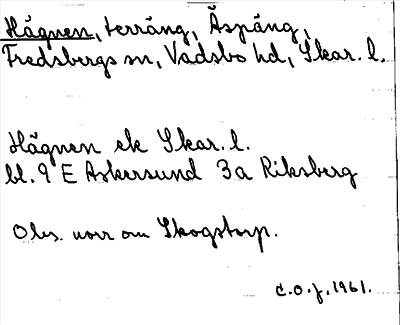 Hägnen, terräng, Äspäng,
Fredsbergs sn, Vadsbo hd, Skar. l.
Hägnen ek Skar. l.
bl. 9 E Askersund 3a Riksberg
Obs. norr om Skogstorp.
C.O.J. 1961.